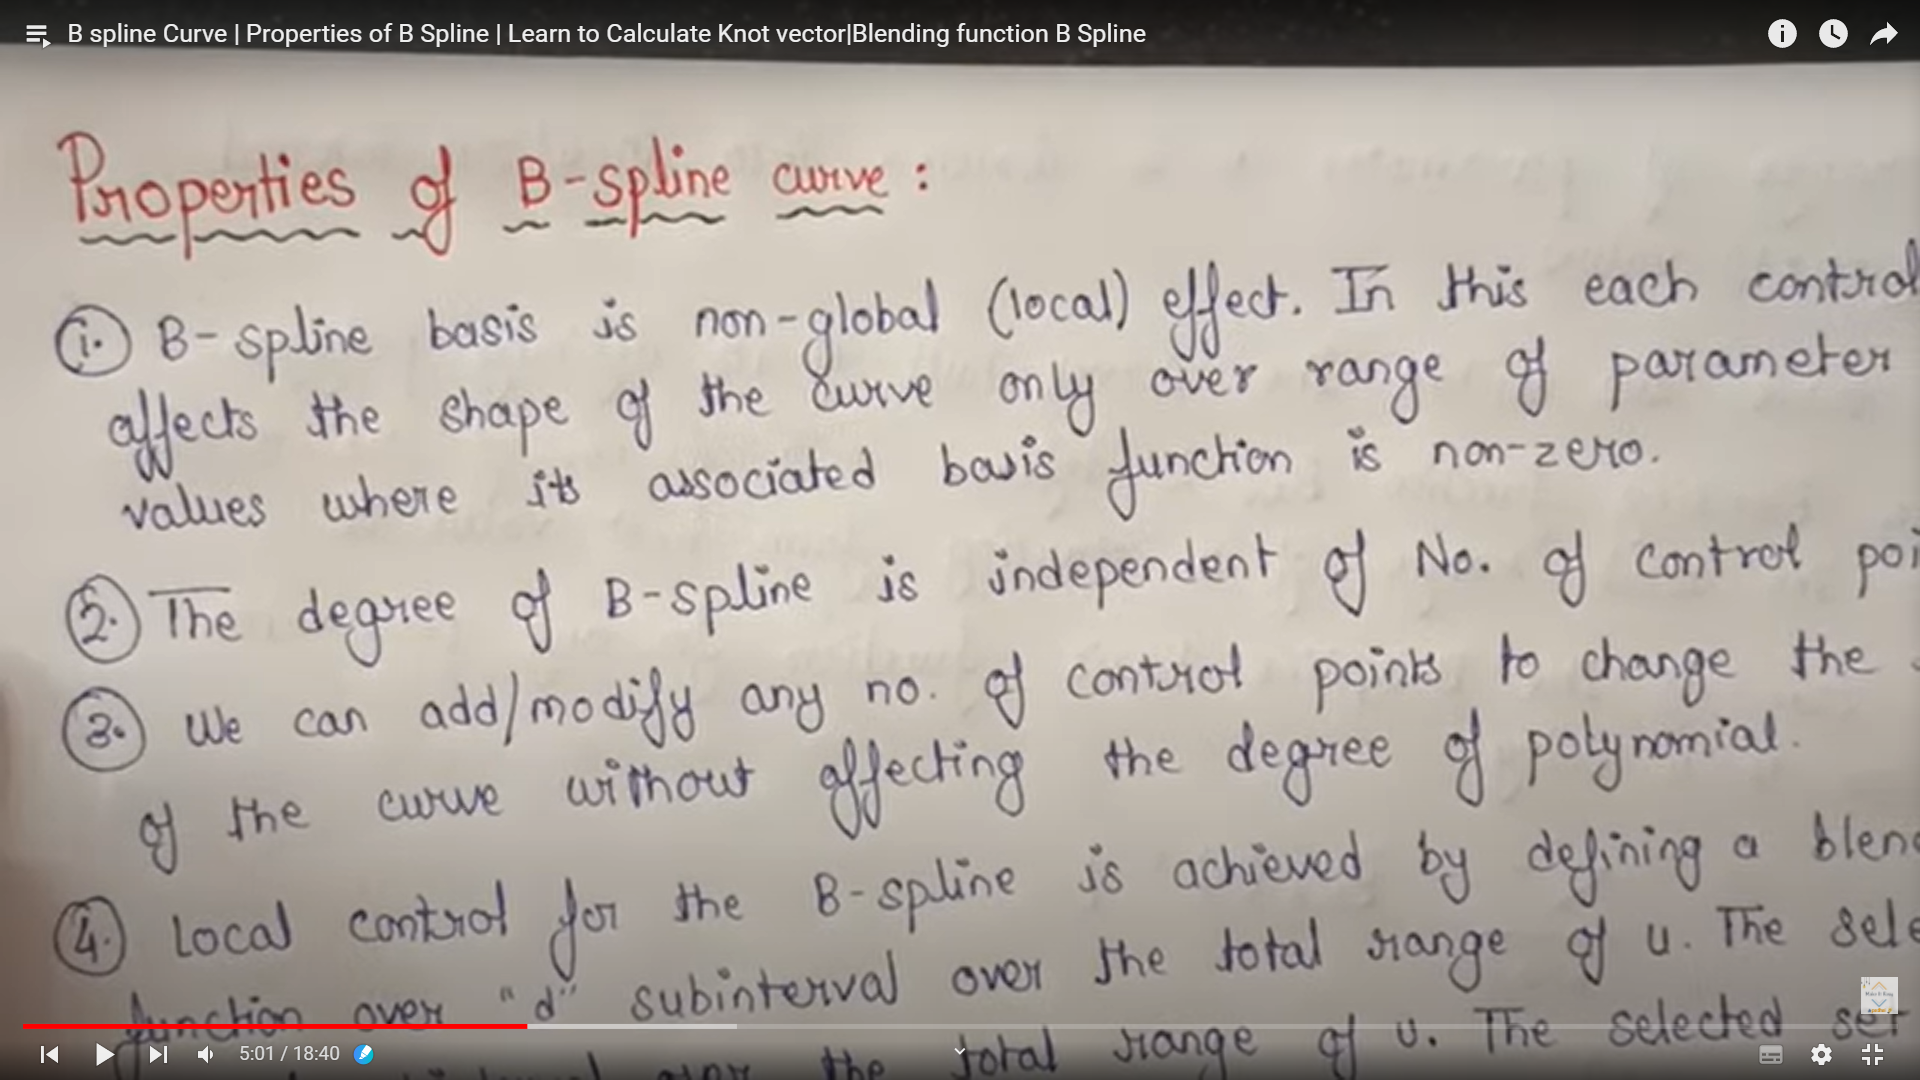 B spline Curve | Properties of B Spline | Learn to Calculate Knot vector|Blending function B Spline
Properties of B-spline curve :
1. B-spline basis is non-global (local) effect. In this each control
affects the shape of the curve only over range of parameter
values where its associated basis function is non-zero.
2. The degree of B-spline is independent of No. of control poi
3. We can add/modify any no. of control points to change the
of the curve without affecting the degree of polynomial.
4. Local control for the B-spline is achieved by defining a blen
function over "d" subinterval over the total range of u. The sele
over the total range of u. The selected set
5:01 / 18:40